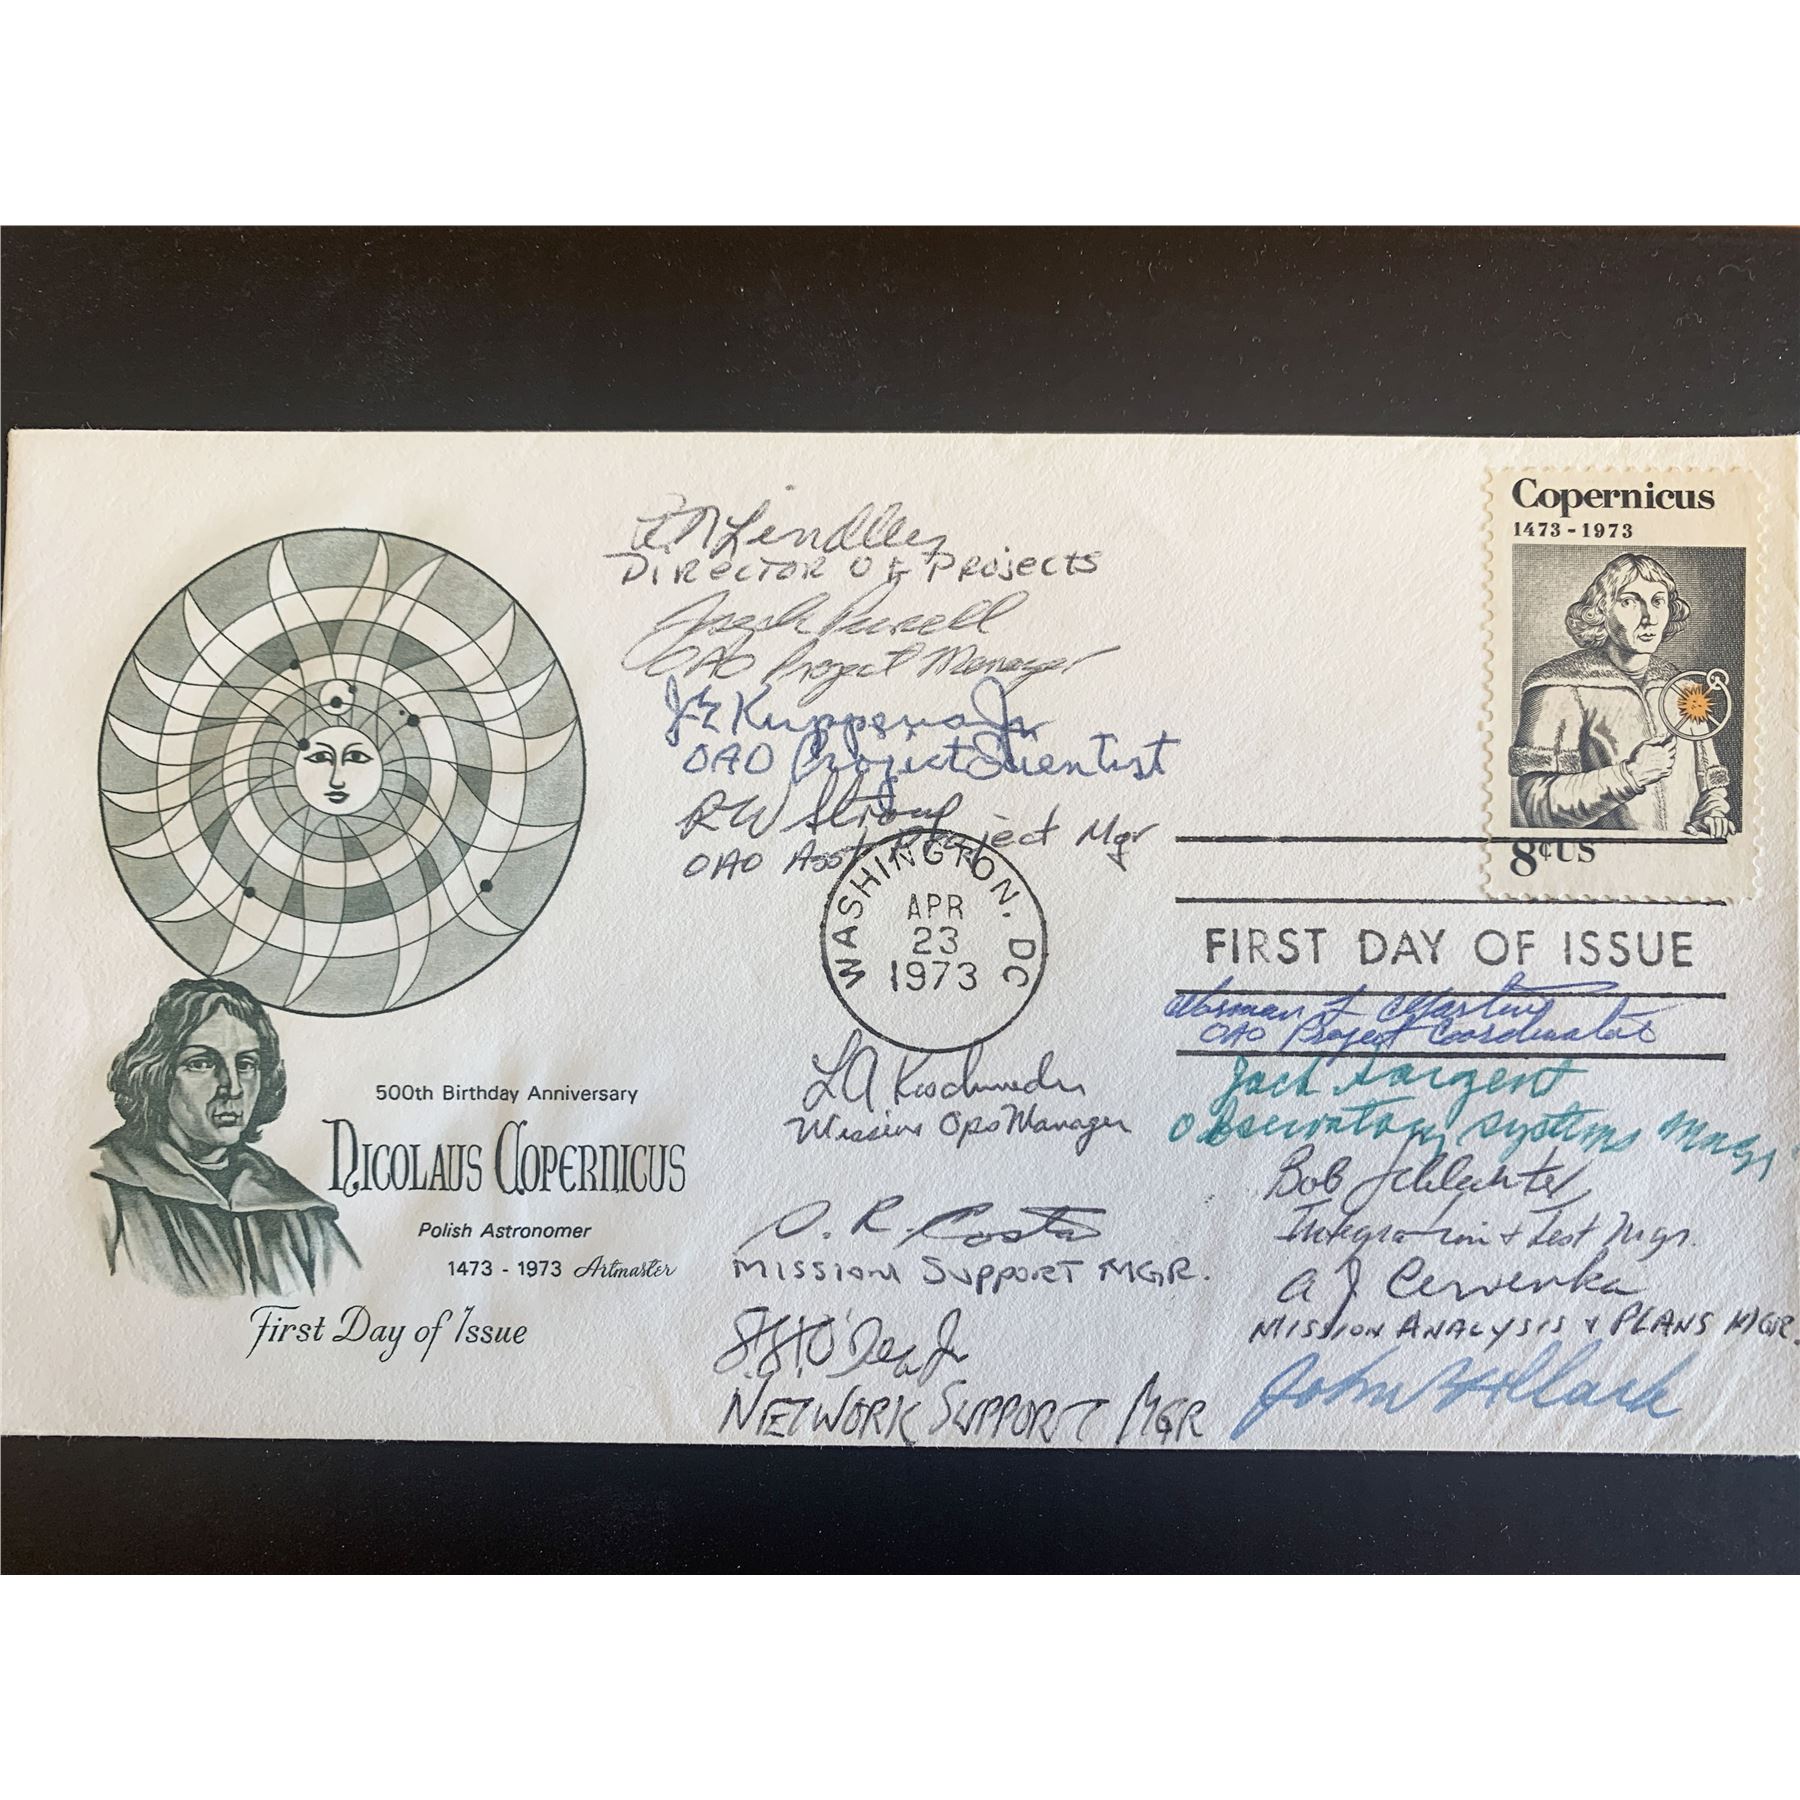 R N Lindley
DIRECTOR OF PROJECTS
Joseph Purcell
OAO Project Manager
J E Kupperian Jr
OAO Project Scientist
R W Stroup
OAO Asst Project Mgr
Copernicus
1473-1973
8¢US
WASHINGTON, DC
APR
23
1973
FIRST DAY OF ISSUE
Norman L Martin
OAO Project Coordinator
Jack Sargent
Observatory Systems Mngr
Bob Schlechter
Integration + Test Mgr.
A J Cervenka
MISSION ANALYSIS & PLANS MGR.
John
L A
Mission Ops Manager
O. R. Costa
MISSION SUPPORT MGR.
O'Dea Jr
NETWORK SUPPORT MGR
500th Birthday Anniversary
NICOLAUS COPERNICUS
Polish Astronomer
1473 - 1973 Artmaster
First Day of Issue